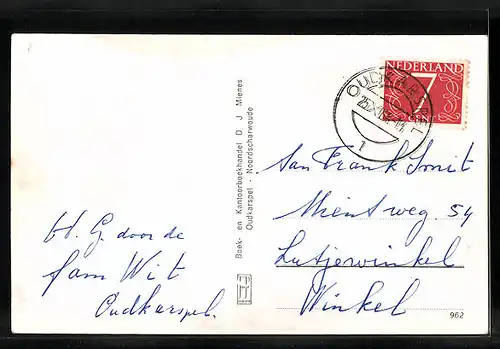 NEDERLAND
7
OUDKARSPEL
1
Boek- en Kantoorboekhandel D. J. Mienes
Oudkarspel - Noordscharwoude
bl. G. door de
fam Wit
Oudkarspel.
aan Frank Smit
Mientweg. 54
Lutjewinkel
Winkel
962